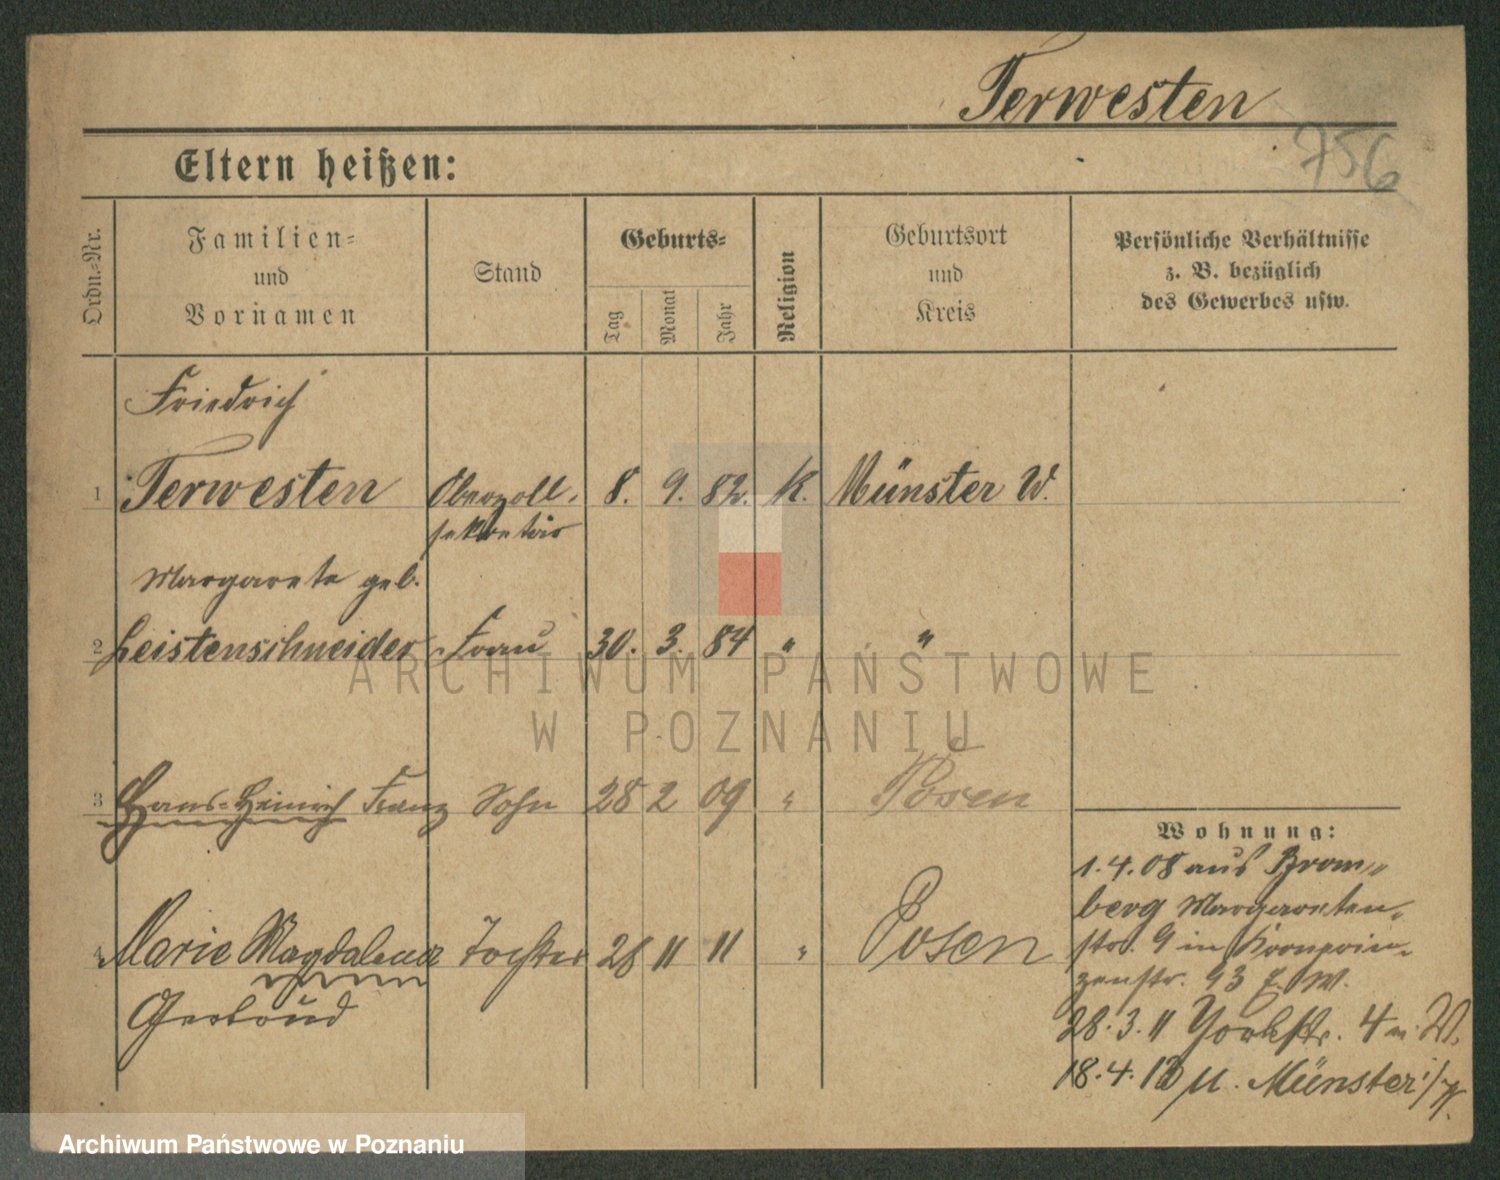 Terwesten
756
Eltern heißen:
Ordn.-Nr.
Familien-
und
Vornamen
Stand
Geburts-
Tag
Monat
Jahr
Religion
Geburtsort
und
Kreis
Persönliche Verhältnisse
z. B. bezüglich
des Gewerbes usw.
Friedrich
1 Terwesten Oberzoll- 8. 9. 82. K. Münster W.
sekretär
Margarete geb.
2 Leistenschneider Frau 30. 3. 84 " "
3 Hans-Heinrich Franz Sohn 28 2 09 " Posen
4 Marie Magdalena Tochter 28 11 11 " Posen
Gertrud
Wohnung:
1.4.08 aus Brom-
berg Margareten-
str. 9 in Kronprin-
zenstr. 93 W.
28.3.11 Yorkstr. 4 W.
18.4.12 u. Münster i/W.
ARCHIWUM PAŃSTWOWE
W POZNANIU
Archiwum Państwowe w Poznaniu